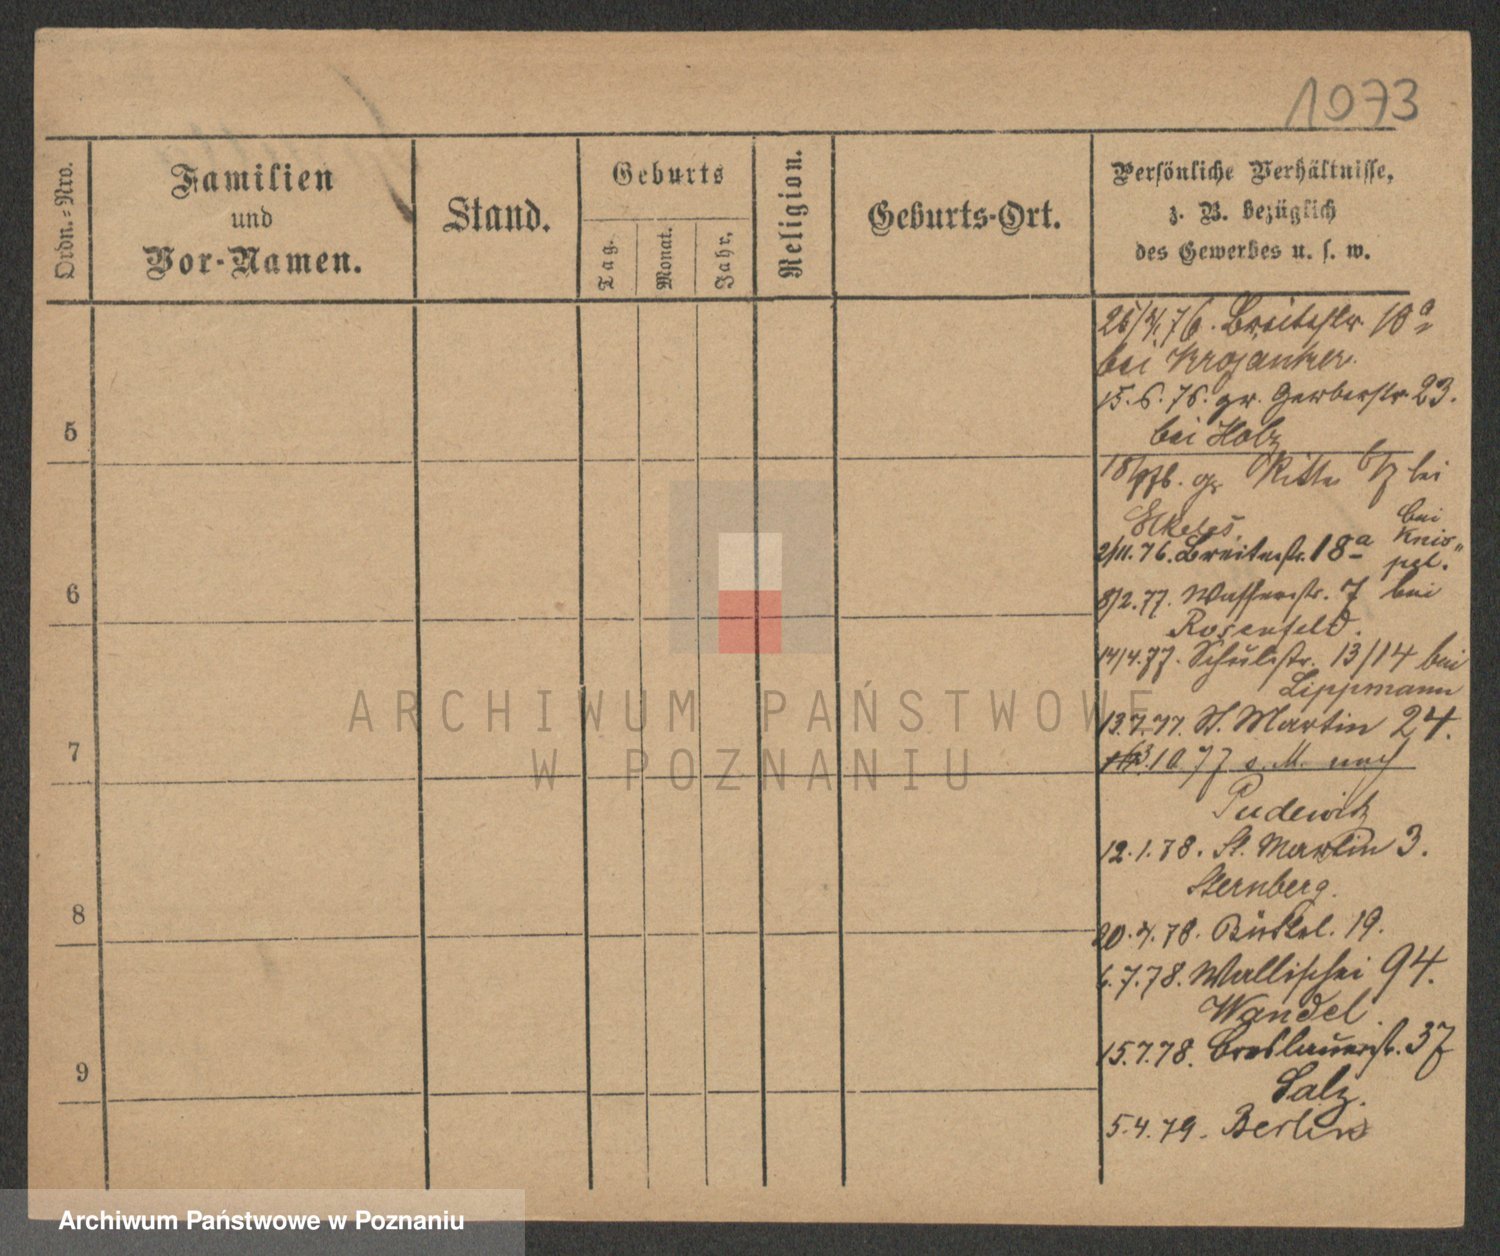 1073
Ordn.-Nro.
Familien
und
Vor-Namen.
Stand.
Geburts
Tag.
Monat.
Jahr.
Religion.
Geburts-Ort.
Persönliche Verhältnisse,
z. B. bezüglich
des Gewerbes u. s. w.
26/4.76. Breitestr. 10a
bei Krojanker.
15.6.76. gr. Gerberstr. 23.
bei Holz
5
gr. Ritter bei
Elkeles.
2/11.76. Breitestr. 18a bei
8/2.77. Wasserstr. 7 bei
6
Rosenfeld.
14/4.77. Schulstr. 13/14 bei
Lippmann
13.7.77. St. Martin 24.
7
10 77 s. M. nach
Pudewitz
12.1.78. St. Martin 3.
Sternberg.
8
20.4.78. Büttel. 19.
6.7.78. Wallischei 94.
Wandel.
15.7.78. Breslauerstr. 37
9
Salz.
5.4.79. Berlin
ARCHIWUM PAŃSTWOWE
W POZNANIU
Archiwum Państwowe w Poznaniu